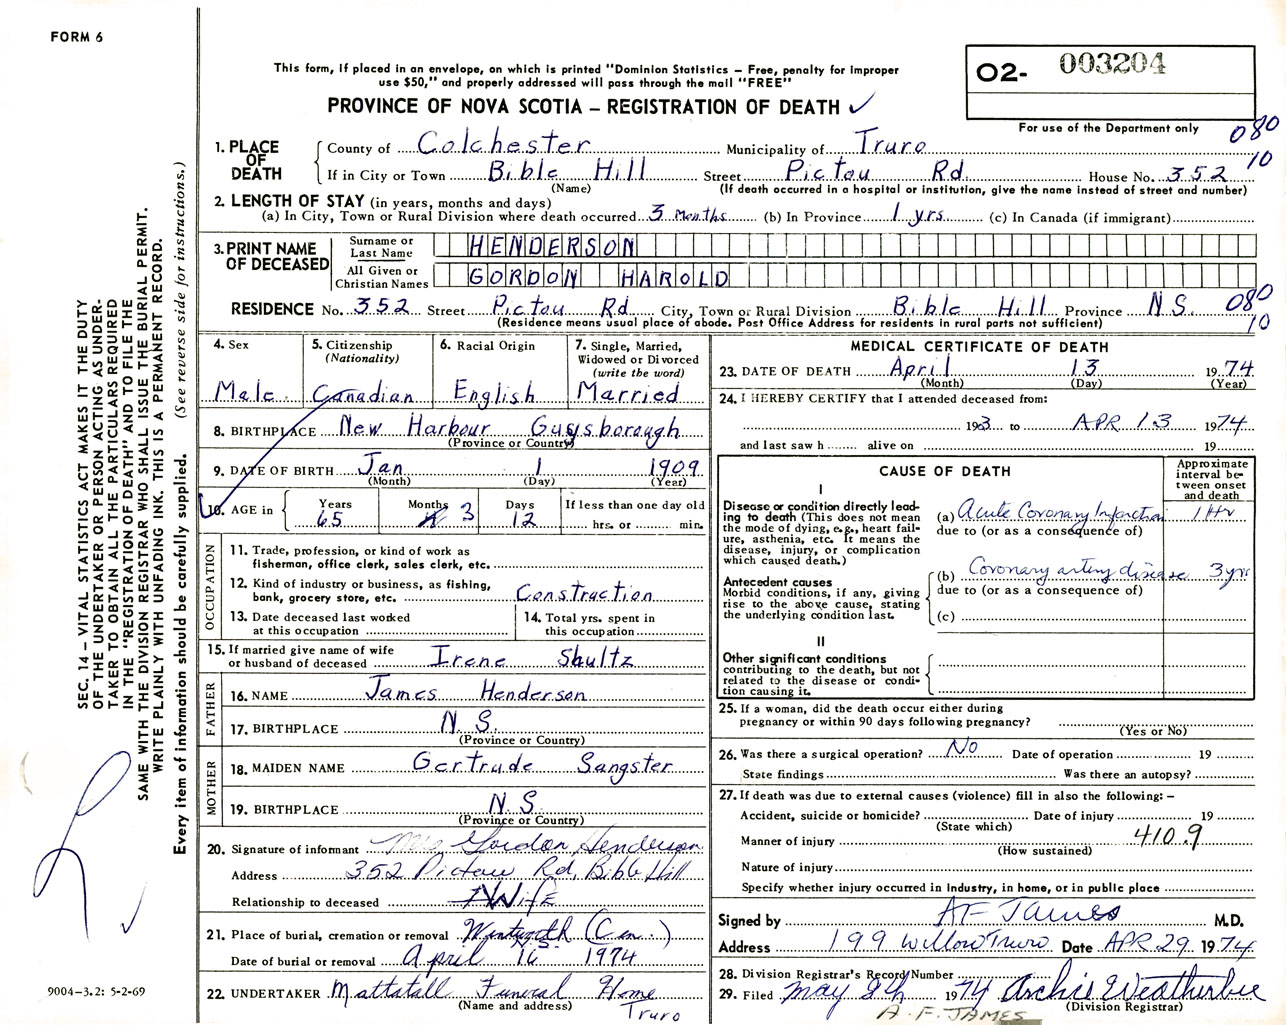 FORM 6
O2- 003204
This form, if placed in an envelope, on which is printed "Dominion Statistics – Free, penalty for improper
use $50," and properly addressed will pass through the mail "FREE"
PROVINCE OF NOVA SCOTIA – REGISTRATION OF DEATH ✓
For use of the Department only
080
10
1. PLACE OF DEATH
County of Colchester Municipality of Truro
If in City or Town Bible Hill Street Pictou Rd House No. 352
(Name) (If death occurred in a hospital or institution, give the name instead of street and number)
2. LENGTH OF STAY (in years, months and days)
(a) In City, Town or Rural Division where death occurred 3 Months (b) In Province 1 yrs (c) In Canada (if immigrant)
3. PRINT NAME OF DECEASED
Surname or Last Name HENDERSON
All Given or Christian Names GORDON HAROLD
RESIDENCE No. 352 Street Pictou Rd City, Town or Rural Division Bible Hill Province N.S. 080
10
(Residence means usual place of abode. Post Office Address for residents in rural parts not sufficient)
4. Sex
Male
5. Citizenship
(Nationality)
Canadian
6. Racial Origin
English
7. Single, Married,
Widowed or Divorced
(write the word)
Married
8. BIRTHPLACE New Harbour Guysborough
(Province or Country)
9. DATE OF BIRTH Jan 1 1909
(Month) (Day) (Year)
10. AGE in
Years Months Days If less than one day old
65 3 12 hrs. or min.
OCCUPATION
11. Trade, profession, or kind of work as
fisherman, office clerk, sales clerk, etc.
12. Kind of industry or business, as fishing,
bank, grocery store, etc. Construction
13. Date deceased last worked
at this occupation
14. Total yrs. spent in
this occupation
15. If married give name of wife
or husband of deceased Irene Shultz
FATHER
16. NAME James Henderson
17. BIRTHPLACE N.S.
(Province or Country)
MOTHER
18. MAIDEN NAME Gertrude Sangster
19. BIRTHPLACE N.S.
(Province or Country)
20. Signature of informant Mrs Gordon Henderson
Address 352 Pictou Rd, Bible Hill
Relationship to deceased Wife
21. Place of burial, cremation or removal Wentworth (Cem.)
N.S.
Date of burial or removal April 16 1974
22. UNDERTAKER Mattatall Funeral Home
(Name and address) Truro
MEDICAL CERTIFICATE OF DEATH
23. DATE OF DEATH April 13 1974
(Month) (Day) (Year)
24. I HEREBY CERTIFY that I attended deceased from:
19 to APR 13 1974
and last saw h alive on 19
CAUSE OF DEATH
Approximate
interval be-
tween onset
and death
I
Disease or condition directly lead-
ing to death (This does not mean
the mode of dying, e.g., heart fail-
ure, asthenia, etc. It means the
disease, injury, or complication
which caused death.)
(a) Acute Coronary Infarction 1 Hr
due to (or as a consequence of)
Antecedent causes
Morbid conditions, if any, giving
rise to the above cause, stating
the underlying condition last.
(b) Coronary artery disease 3 yrs
due to (or as a consequence of)
(c)
II
Other significant conditions
contributing to the death, but not
related to the disease or condi-
tion causing it.
25. If a woman, did the death occur either during
pregnancy or within 90 days following pregnancy?
(Yes or No)
26. Was there a surgical operation? No Date of operation 19
State findings Was there an autopsy?
27. If death was due to external causes (violence) fill in also the following: –
Accident, suicide or homicide? Date of injury 19
(State which)
Manner of injury 410.9
(How sustained)
Nature of injury
Specify whether injury occurred in industry, in home, or in public place
Signed by A F James M.D.
Address 199 Willow Truro Date APR 29 1974
28. Division Registrar's Record Number
29. Filed May 8th 1974 Archie Weatherbee
(Division Registrar)
A. F. JAMES
SEC. 14 – VITAL STATISTICS ACT MAKES IT THE DUTY
OF THE UNDERTAKER OR PERSON ACTING AS UNDER-
TAKER TO OBTAIN ALL THE PARTICULARS REQUIRED
IN THE "REGISTRATION OF DEATH" AND TO FILE THE
SAME WITH THE DIVISION REGISTRAR WHO SHALL ISSUE THE BURIAL PERMIT.
WRITE PLAINLY WITH UNFADING INK. THIS IS A PERMANENT RECORD.
Every item of information should be carefully supplied. (See reverse side for instructions.)
9004-3.2: 5-2-69